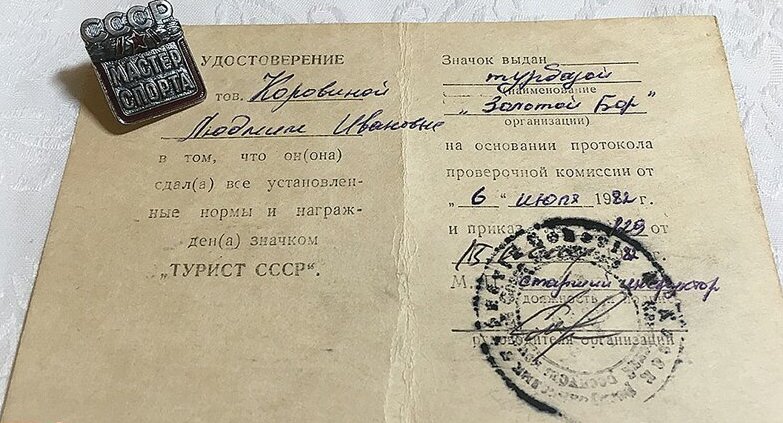 СССР
МАСТЕР
СПОРТА
УДОСТОВЕРЕНИЕ
тов. Коровиной
Людмиле Ивановне
в том, что он(она)
сдал(а) все установлен-
ные нормы и награж-
ден(а) значком
„ТУРИСТ СССР“.
Значок выдан
турбазой
(наименование
„Золотой Бор“
организации)
на основании протокола
проверочной комиссии от
„6“ июля 1982 г.
и приказ 129 от
М.
старший инструктор
должность и
руководителя организации